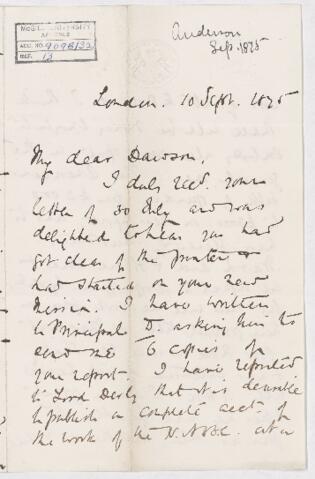 McGILL UNIVERSITY
ARCHIVES
ACC. NO. 909B/32
REF. 13
Anderson
Sep. 1875
London. 10 Sept. 1875
My dear Dawson,
I duly recd. your
letter of 30 July and was
delighted to hear you had
got clear of the printer &
had started on your new
mission. I have written
to Principal D. asking him to
send me 6 copies of
your report. I have reported
to Lord Derby that it is desirable
to publish a complete acct. of
the work of the N.A.B.C.